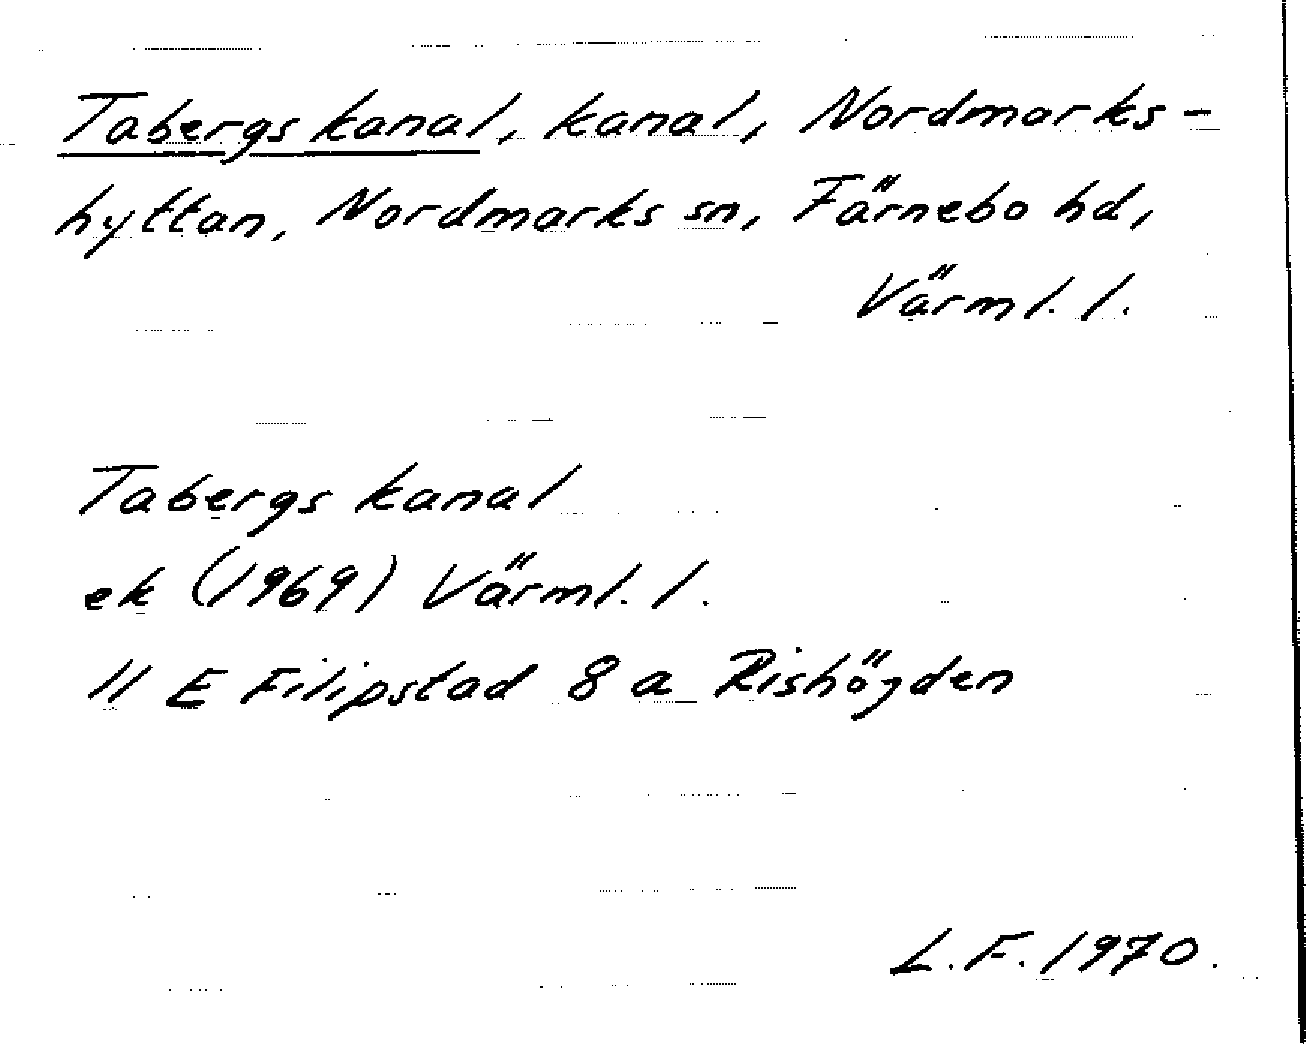 Tabergs kanal, kanal, Nordmarks-
hyttan, Nordmarks sn, Färnebo hd,
Värml. l.
Tabergs kanal
ek (1969) Värml. l.
11 E Filipstad 8 a Rishöjden
L. F. 1970.